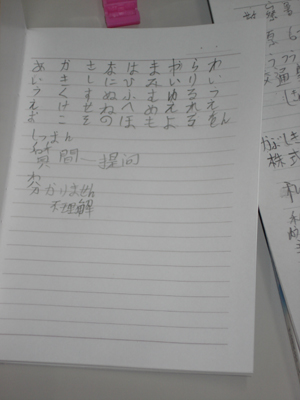 あ か さ な は ま や ら わ
い き し に ひ み い り い
う く す ぬ ふ む ゆ る う
え け せ ね へ め え れ え
お こ そ の ほ も よ ろ をん
しつもん
質問 — 提问
わ
分かりません
不理解
かぶしき
株式